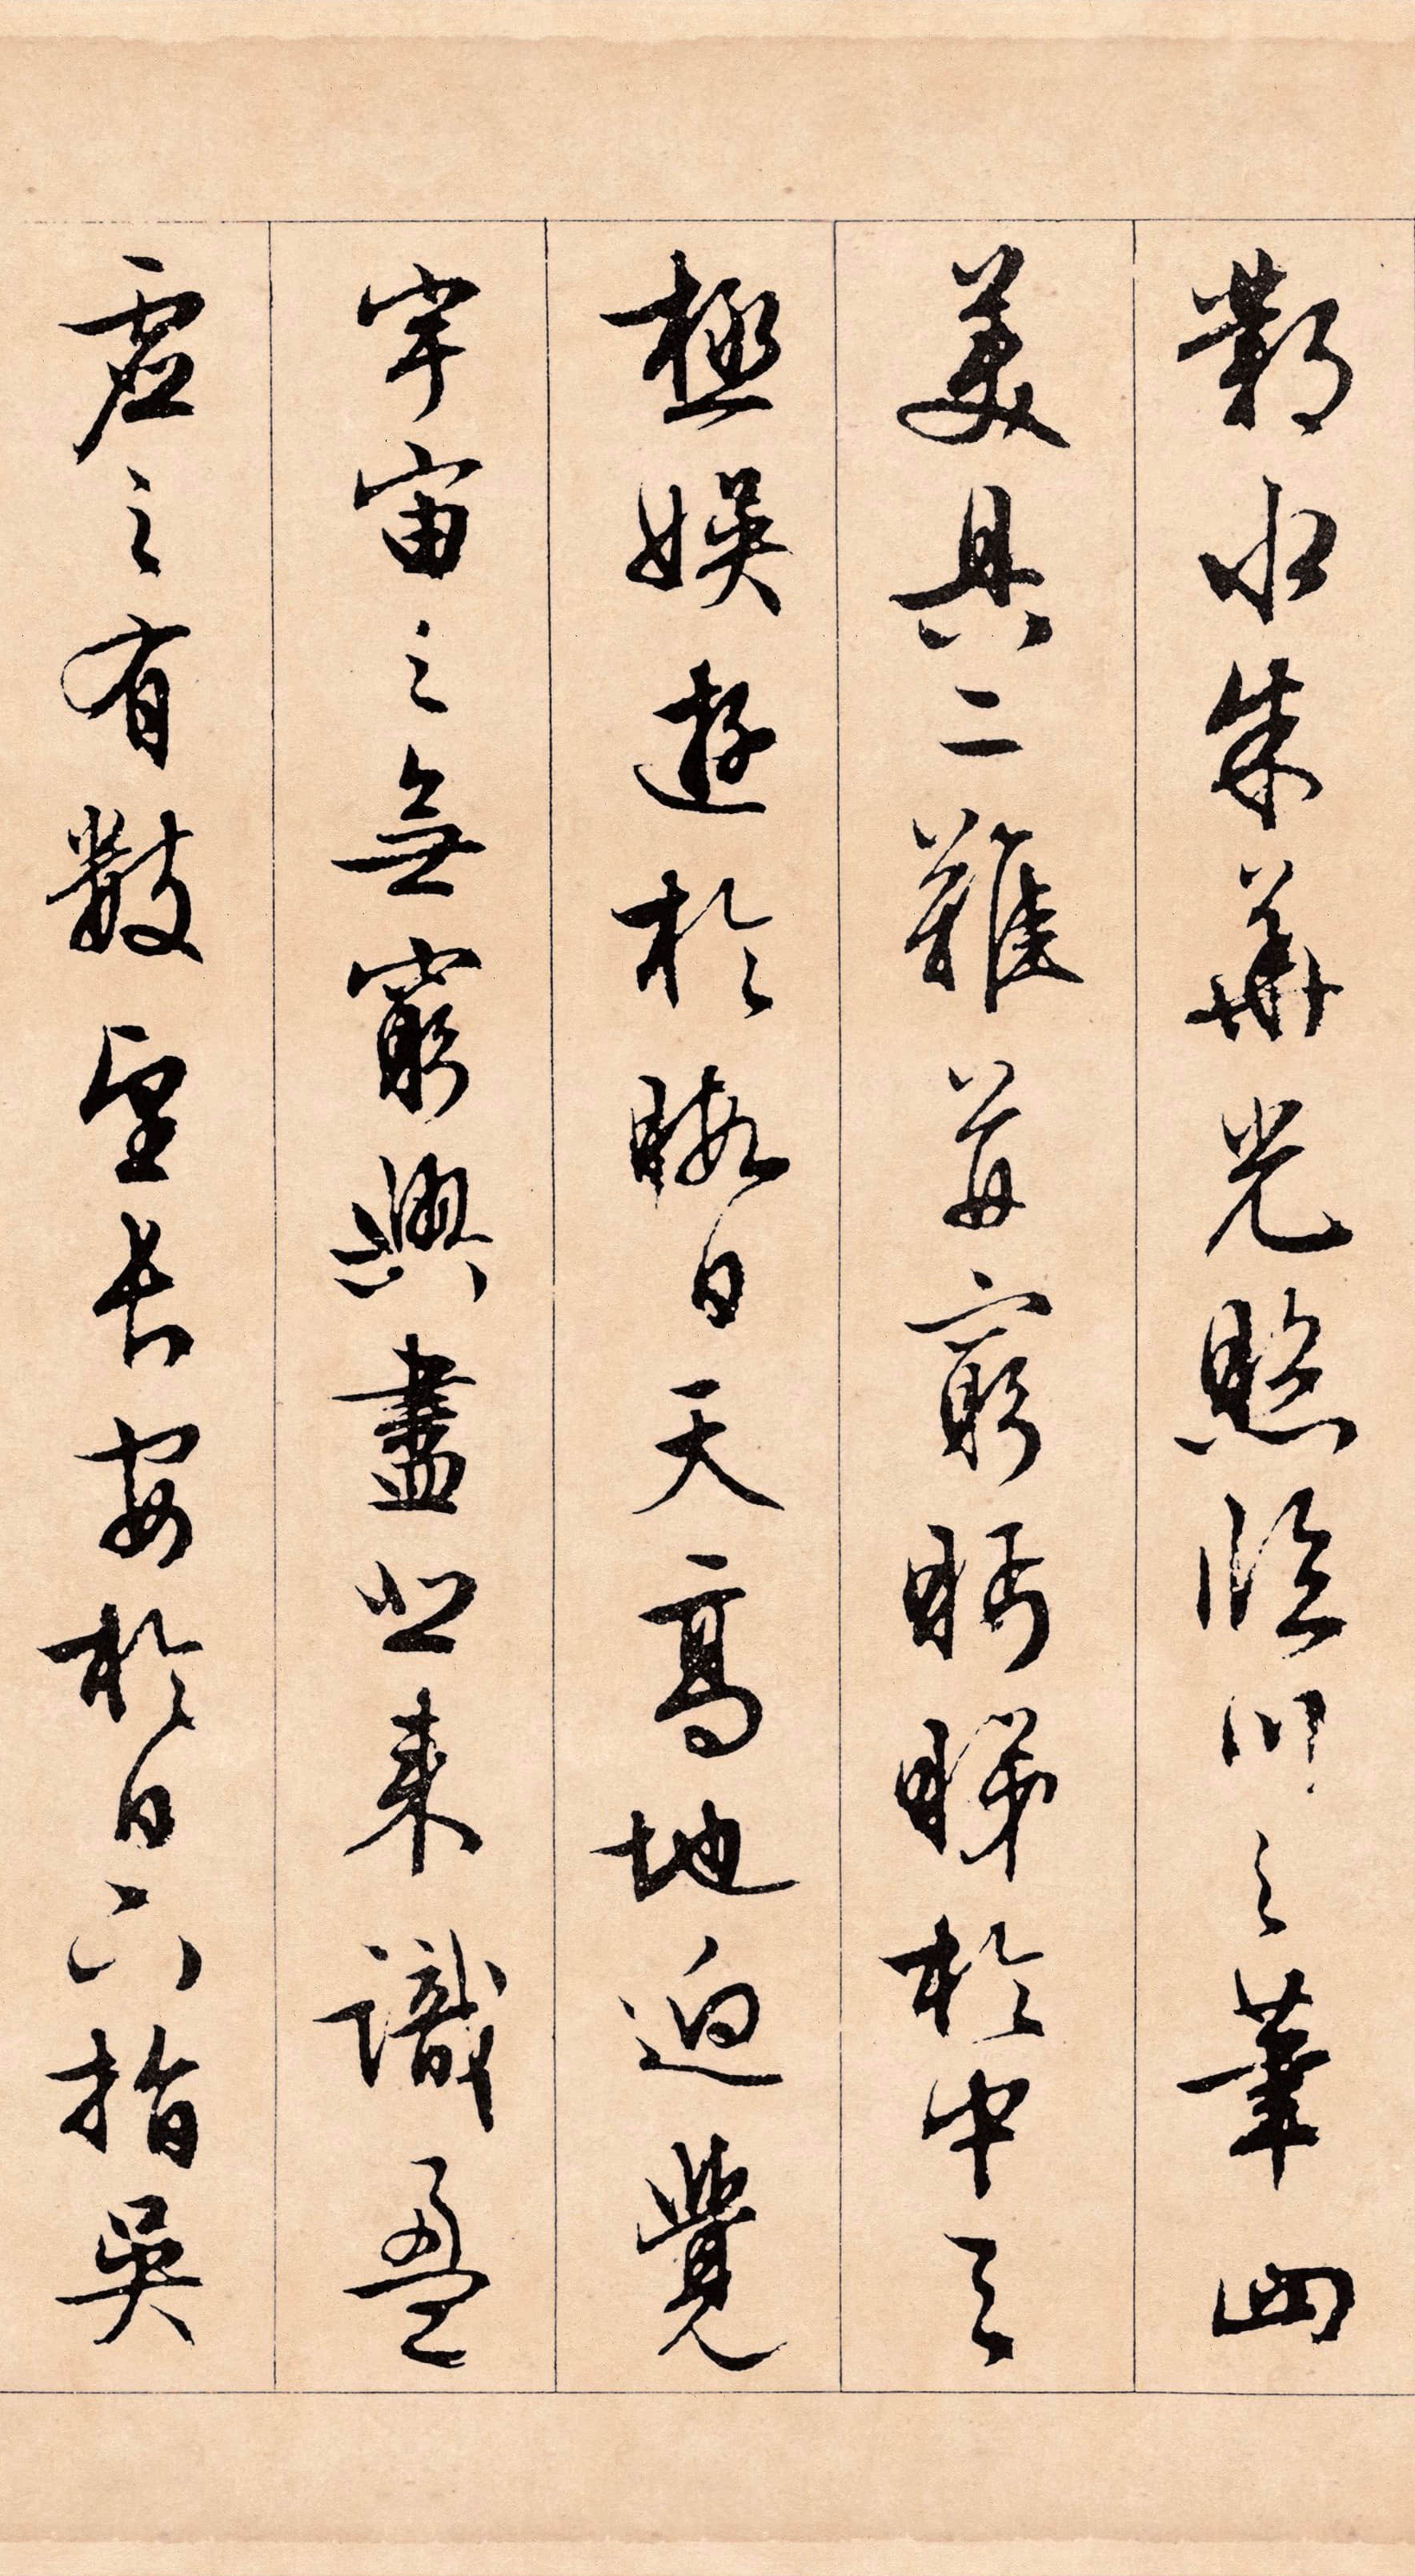 鄴水朱華光照臨川之筆四
美具二難並窮睇眄於中天
極娛遊於暇日天高地迥覺
宇宙之無窮興盡悲來識盈
虛之有數望長安於日下指吳